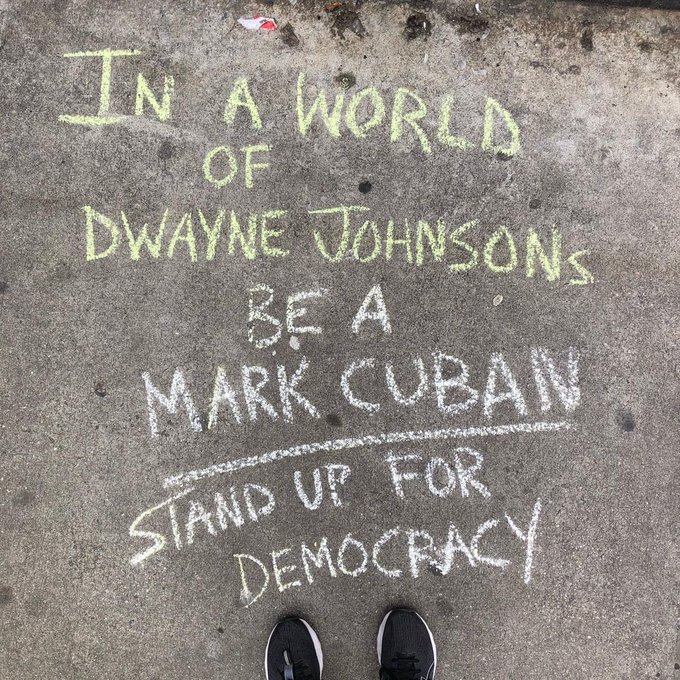 IN A WORLD
OF
DWAYNE JOHNSONS
BE A
MARK CUBAN
STAND UP FOR
DEMOCRACY